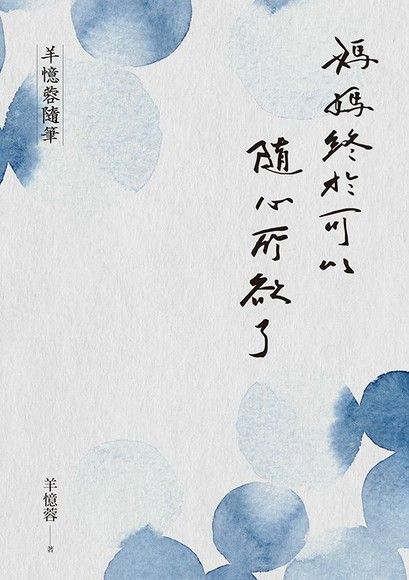 媽媽終於可以
隨心所欲了
羊憶蓉隨筆
羊憶蓉 著